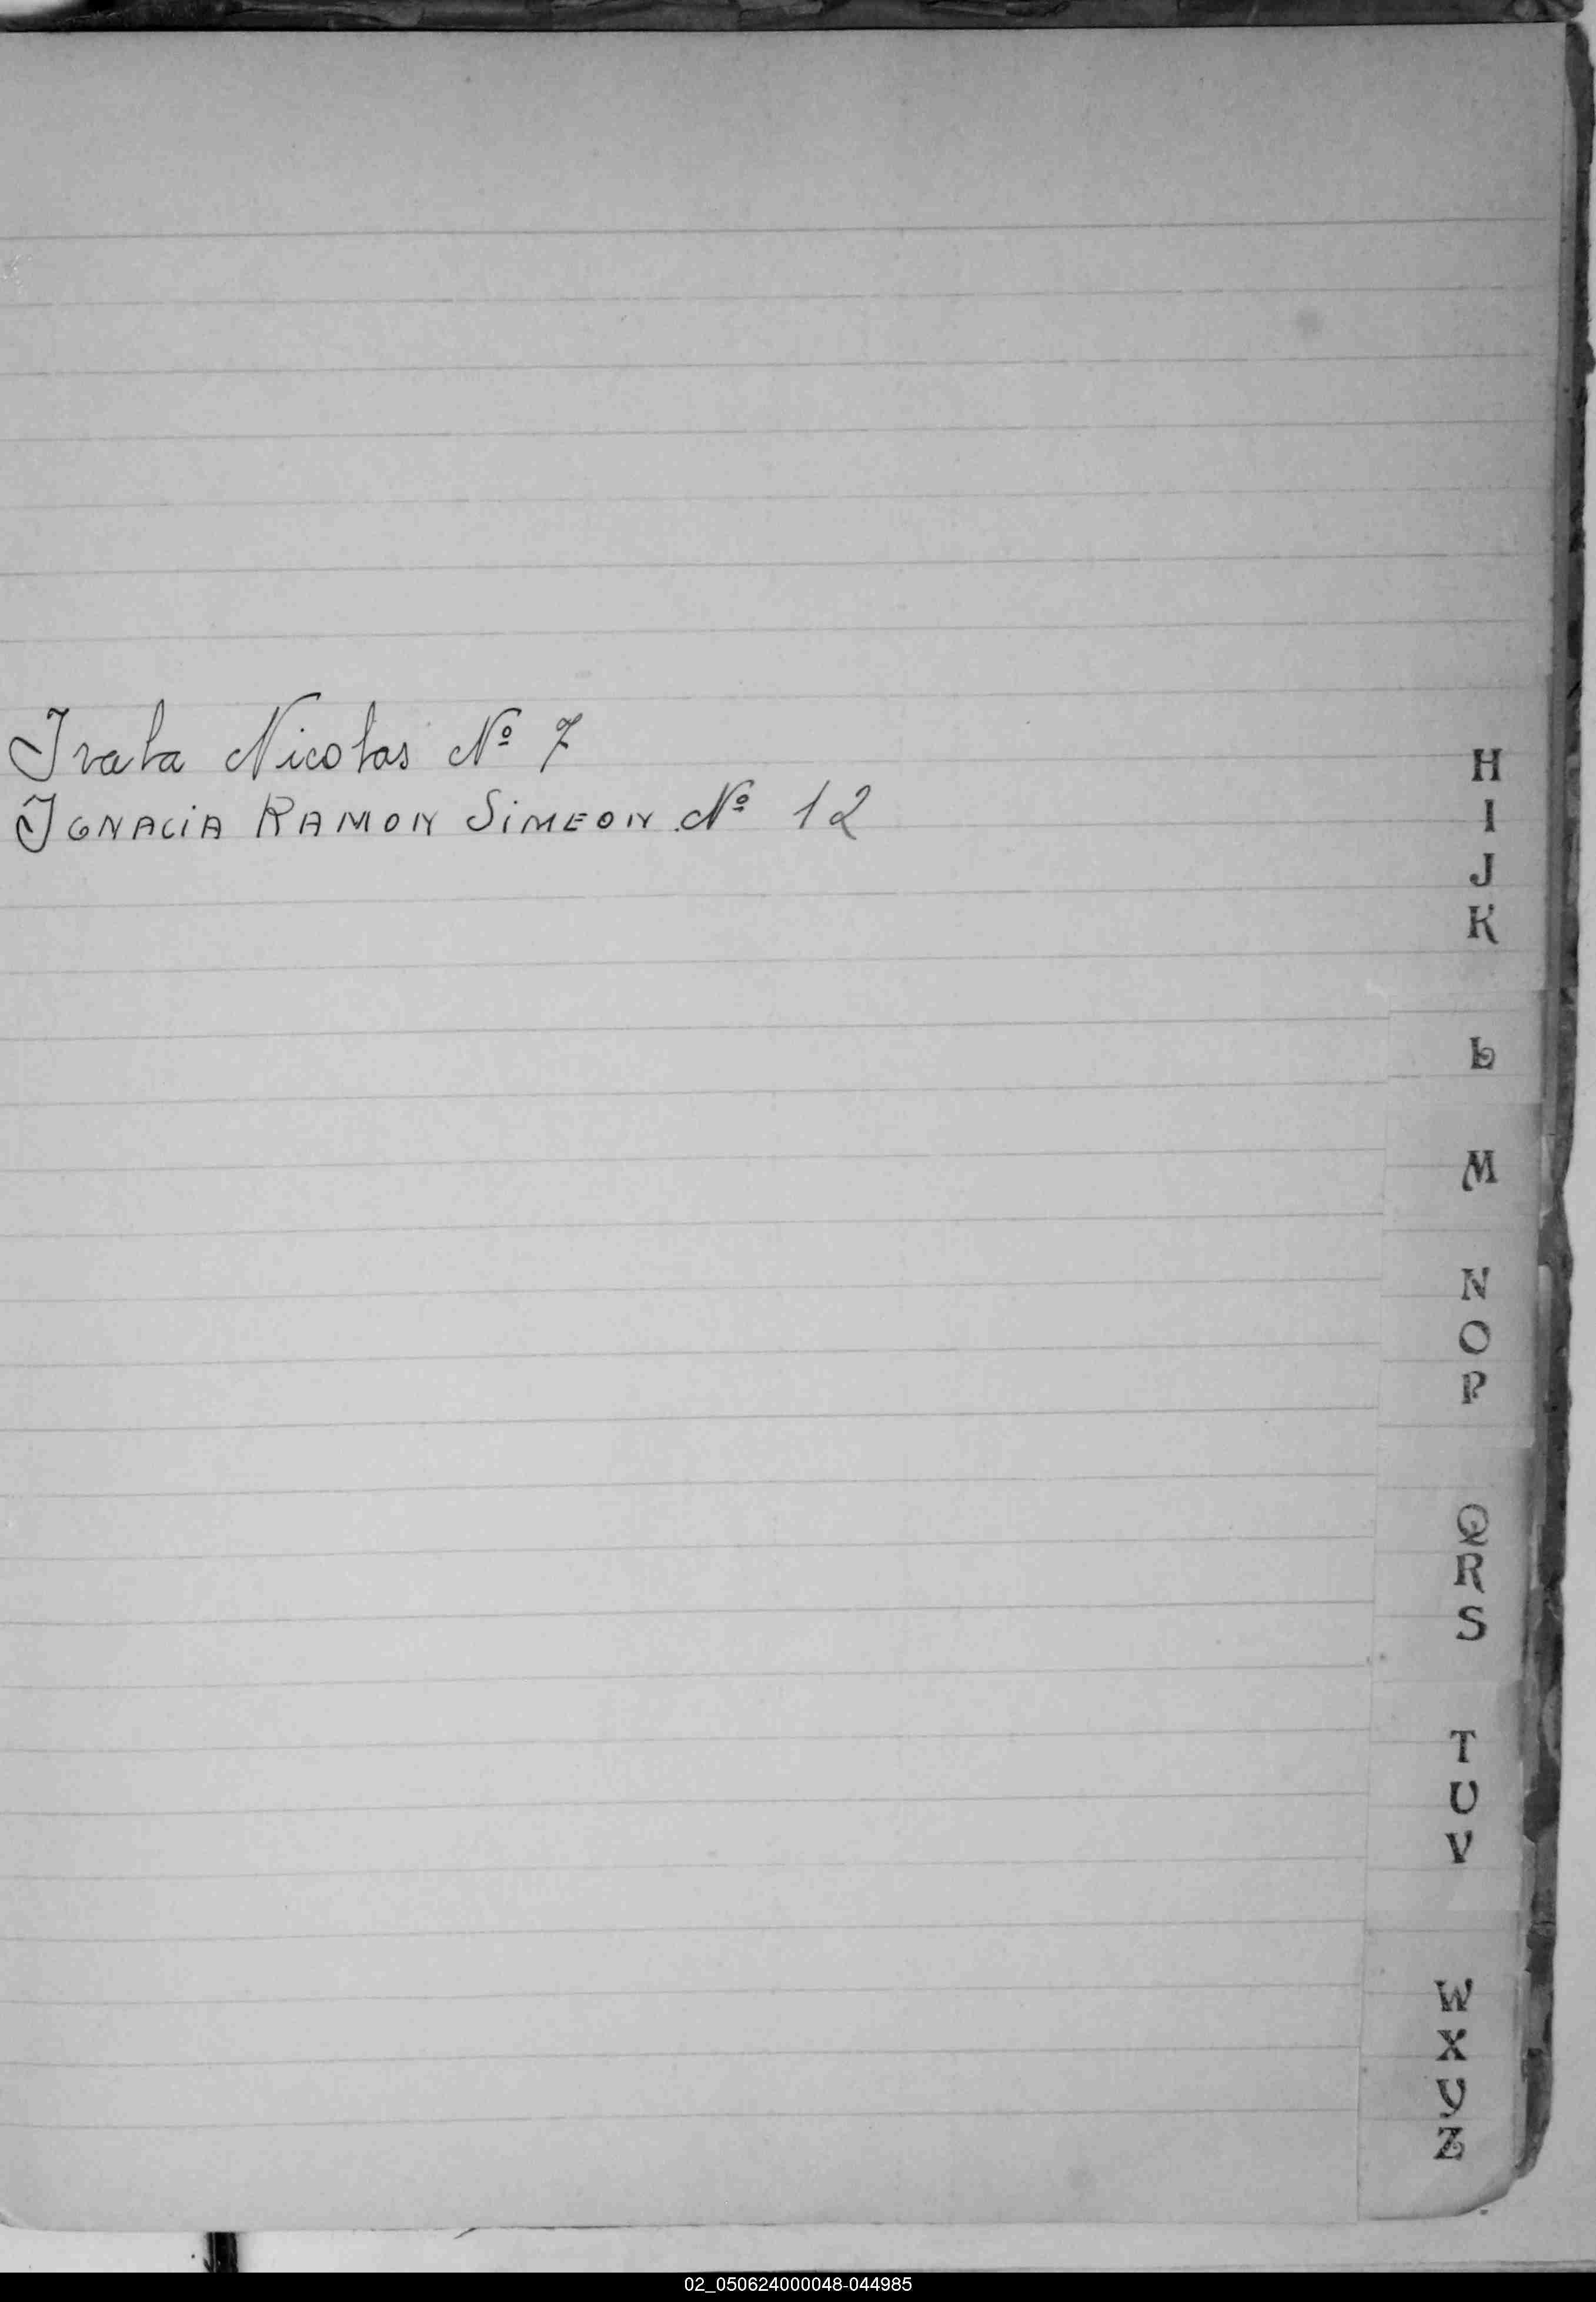 Irala Nicolas Nº 7
IGNACIA RAMON SIMEON Nº 12
H
I
J
K
L
M
N
O
P
Q
R
S
T
U
V
W
X
Y
Z
02_050624000048-044985